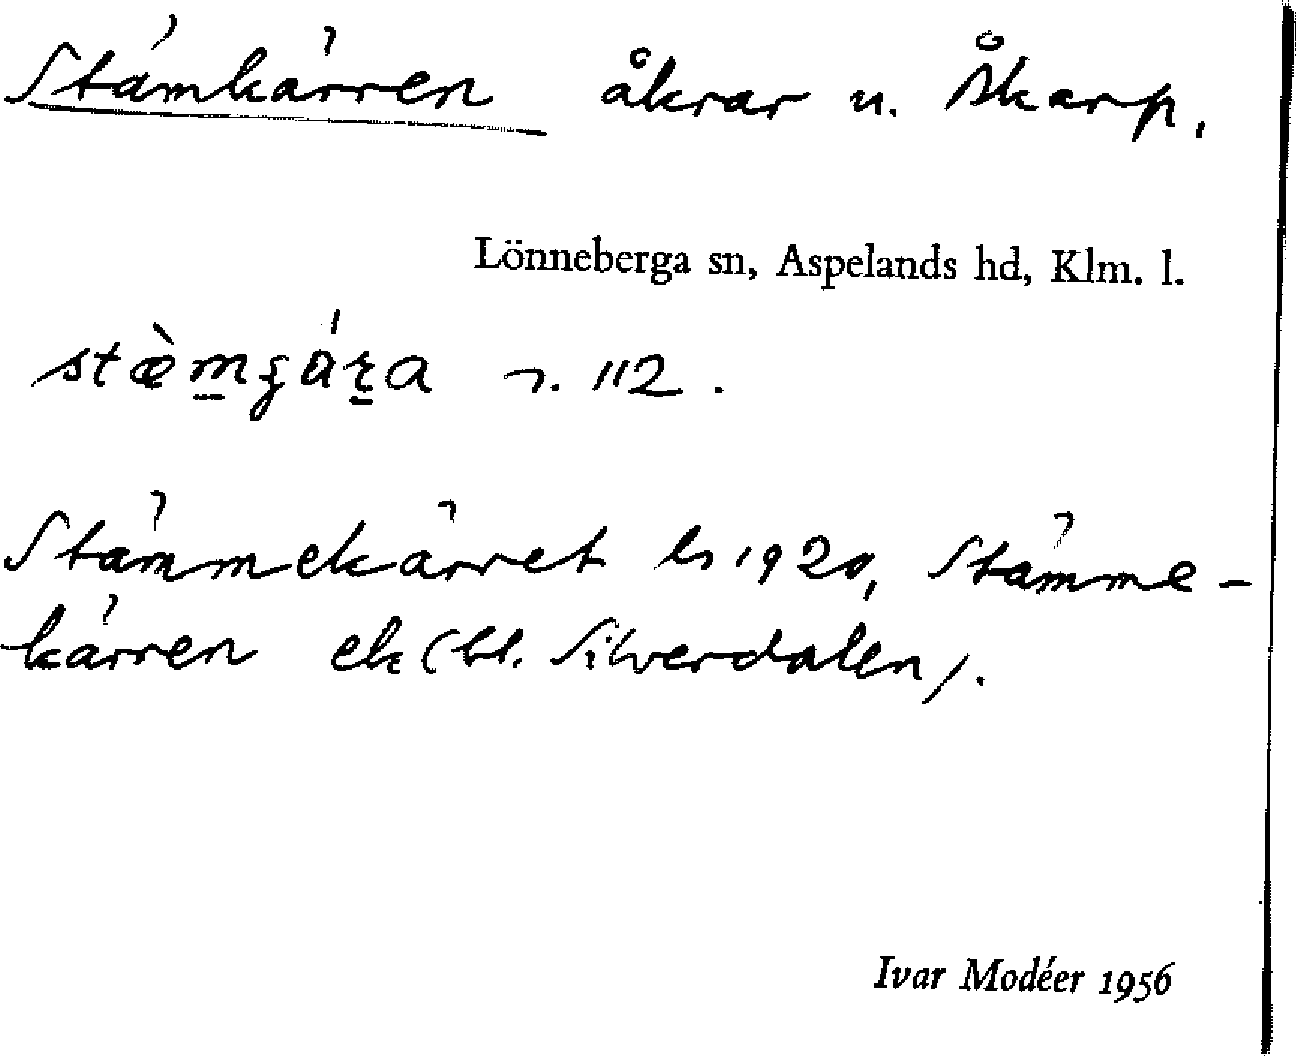 Stämkärren åkrar u. Åkarp.
Lönneberga sn, Aspelands hd, Klm. l.
112.
Stämmekärret ls 1920, Stämme-
kärren ek (bl. Silverdalen).
Ivar Modéer 1956